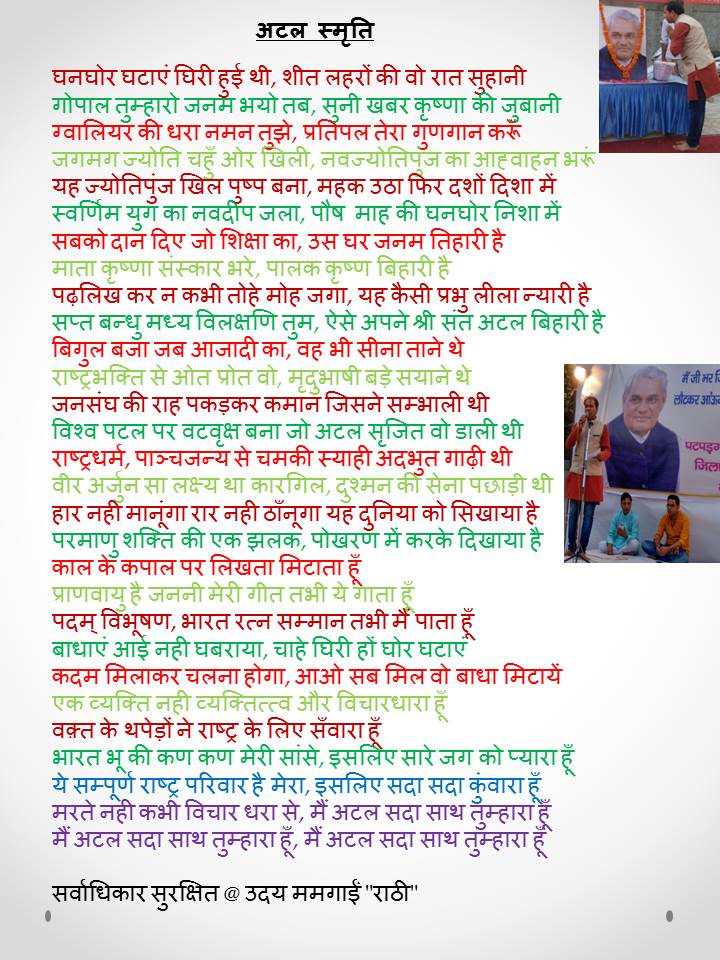 अटल स्मृति
घनघोर घटाएं घिरी हुई थी, शीत लहरों की वो रात सुहानी
गोपाल तुम्हारो जनम भयो तब, सुनी खबर कृष्णा की जुबानी
ग्वालियर की धरा नमन तुझे, प्रतिपल तेरा गुणगान करूँ
जगमग ज्योति चहुँ ओर खिली, नवज्योतिपुंज का आह्वाहन भरूं
यह ज्योतिपुंज खिल पुष्प बना, महक उठा फिर दशों दिशा में
स्वर्णिम युग का नवदीप जला, पौष माह की घनघोर निशा में
सबको दान दिए जो शिक्षा का, उस घर जनम तिहारी है
माता कृष्णा संस्कार भरे, पालक कृष्ण बिहारी है
पढ़लिख कर न कभी तोहे मोह जगा, यह कैसी प्रभु लीला न्यारी है
सप्त बन्धु मध्य विलक्षणि तुम, ऐसे अपने श्री संत अटल बिहारी है
बिगुल बजा जब आजादी का, वह भी सीना ताने थे
राष्ट्रभक्ति से ओत प्रोत वो, मृदुभाषी बड़े सयाने थे
जनसंघ की राह पकड़कर कमान जिसने सम्भाली थी
विश्व पटल पर वटवृक्ष बना जो अटल सृजित वो डाली थी
राष्ट्रधर्म, पाञ्चजन्य से चमकी स्याही अदभुत गाढ़ी थी
वीर अर्जुन सा लक्ष्य था कारगिल, दुश्मन की सेना पछाड़ी थी
हार नही मानूंगा रार नही ठाँनूगा यह दुनिया को सिखाया है
परमाणु शक्ति की एक झलक, पोखरण में करके दिखाया है
काल के कपाल पर लिखता मिटाता हूँ
प्राणवायु है जननी मेरी गीत तभी ये गाता हूँ
पदम् विभूषण, भारत रत्न सम्मान तभी मैं पाता हूँ
बाधाएं आई नही घबराया, चाहे घिरी हों घोर घटाएं
कदम मिलाकर चलना होगा, आओ सब मिल वो बाधा मिटायें
एक व्यक्ति नही व्यक्तित्त्व और विचारधारा हूँ
वक़्त के थपेड़ों ने राष्ट्र के लिए सँवारा हूँ
भारत भू की कण कण मेरी सांसे, इसलिए सारे जग को प्यारा हूँ
ये सम्पूर्ण राष्ट्र परिवार है मेरा, इसलिए सदा सदा कुंवारा हूँ
मरते नही कभी विचार धरा से, मैं अटल सदा साथ तुम्हारा हूँ
मैं अटल सदा साथ तुम्हारा हूँ, मैं अटल सदा साथ तुम्हारा हूँ
सर्वाधिकार सुरक्षित @ उदय ममगाईं "राठी"
मैं जी भर
लौटकर
पटपड़ग
जिला